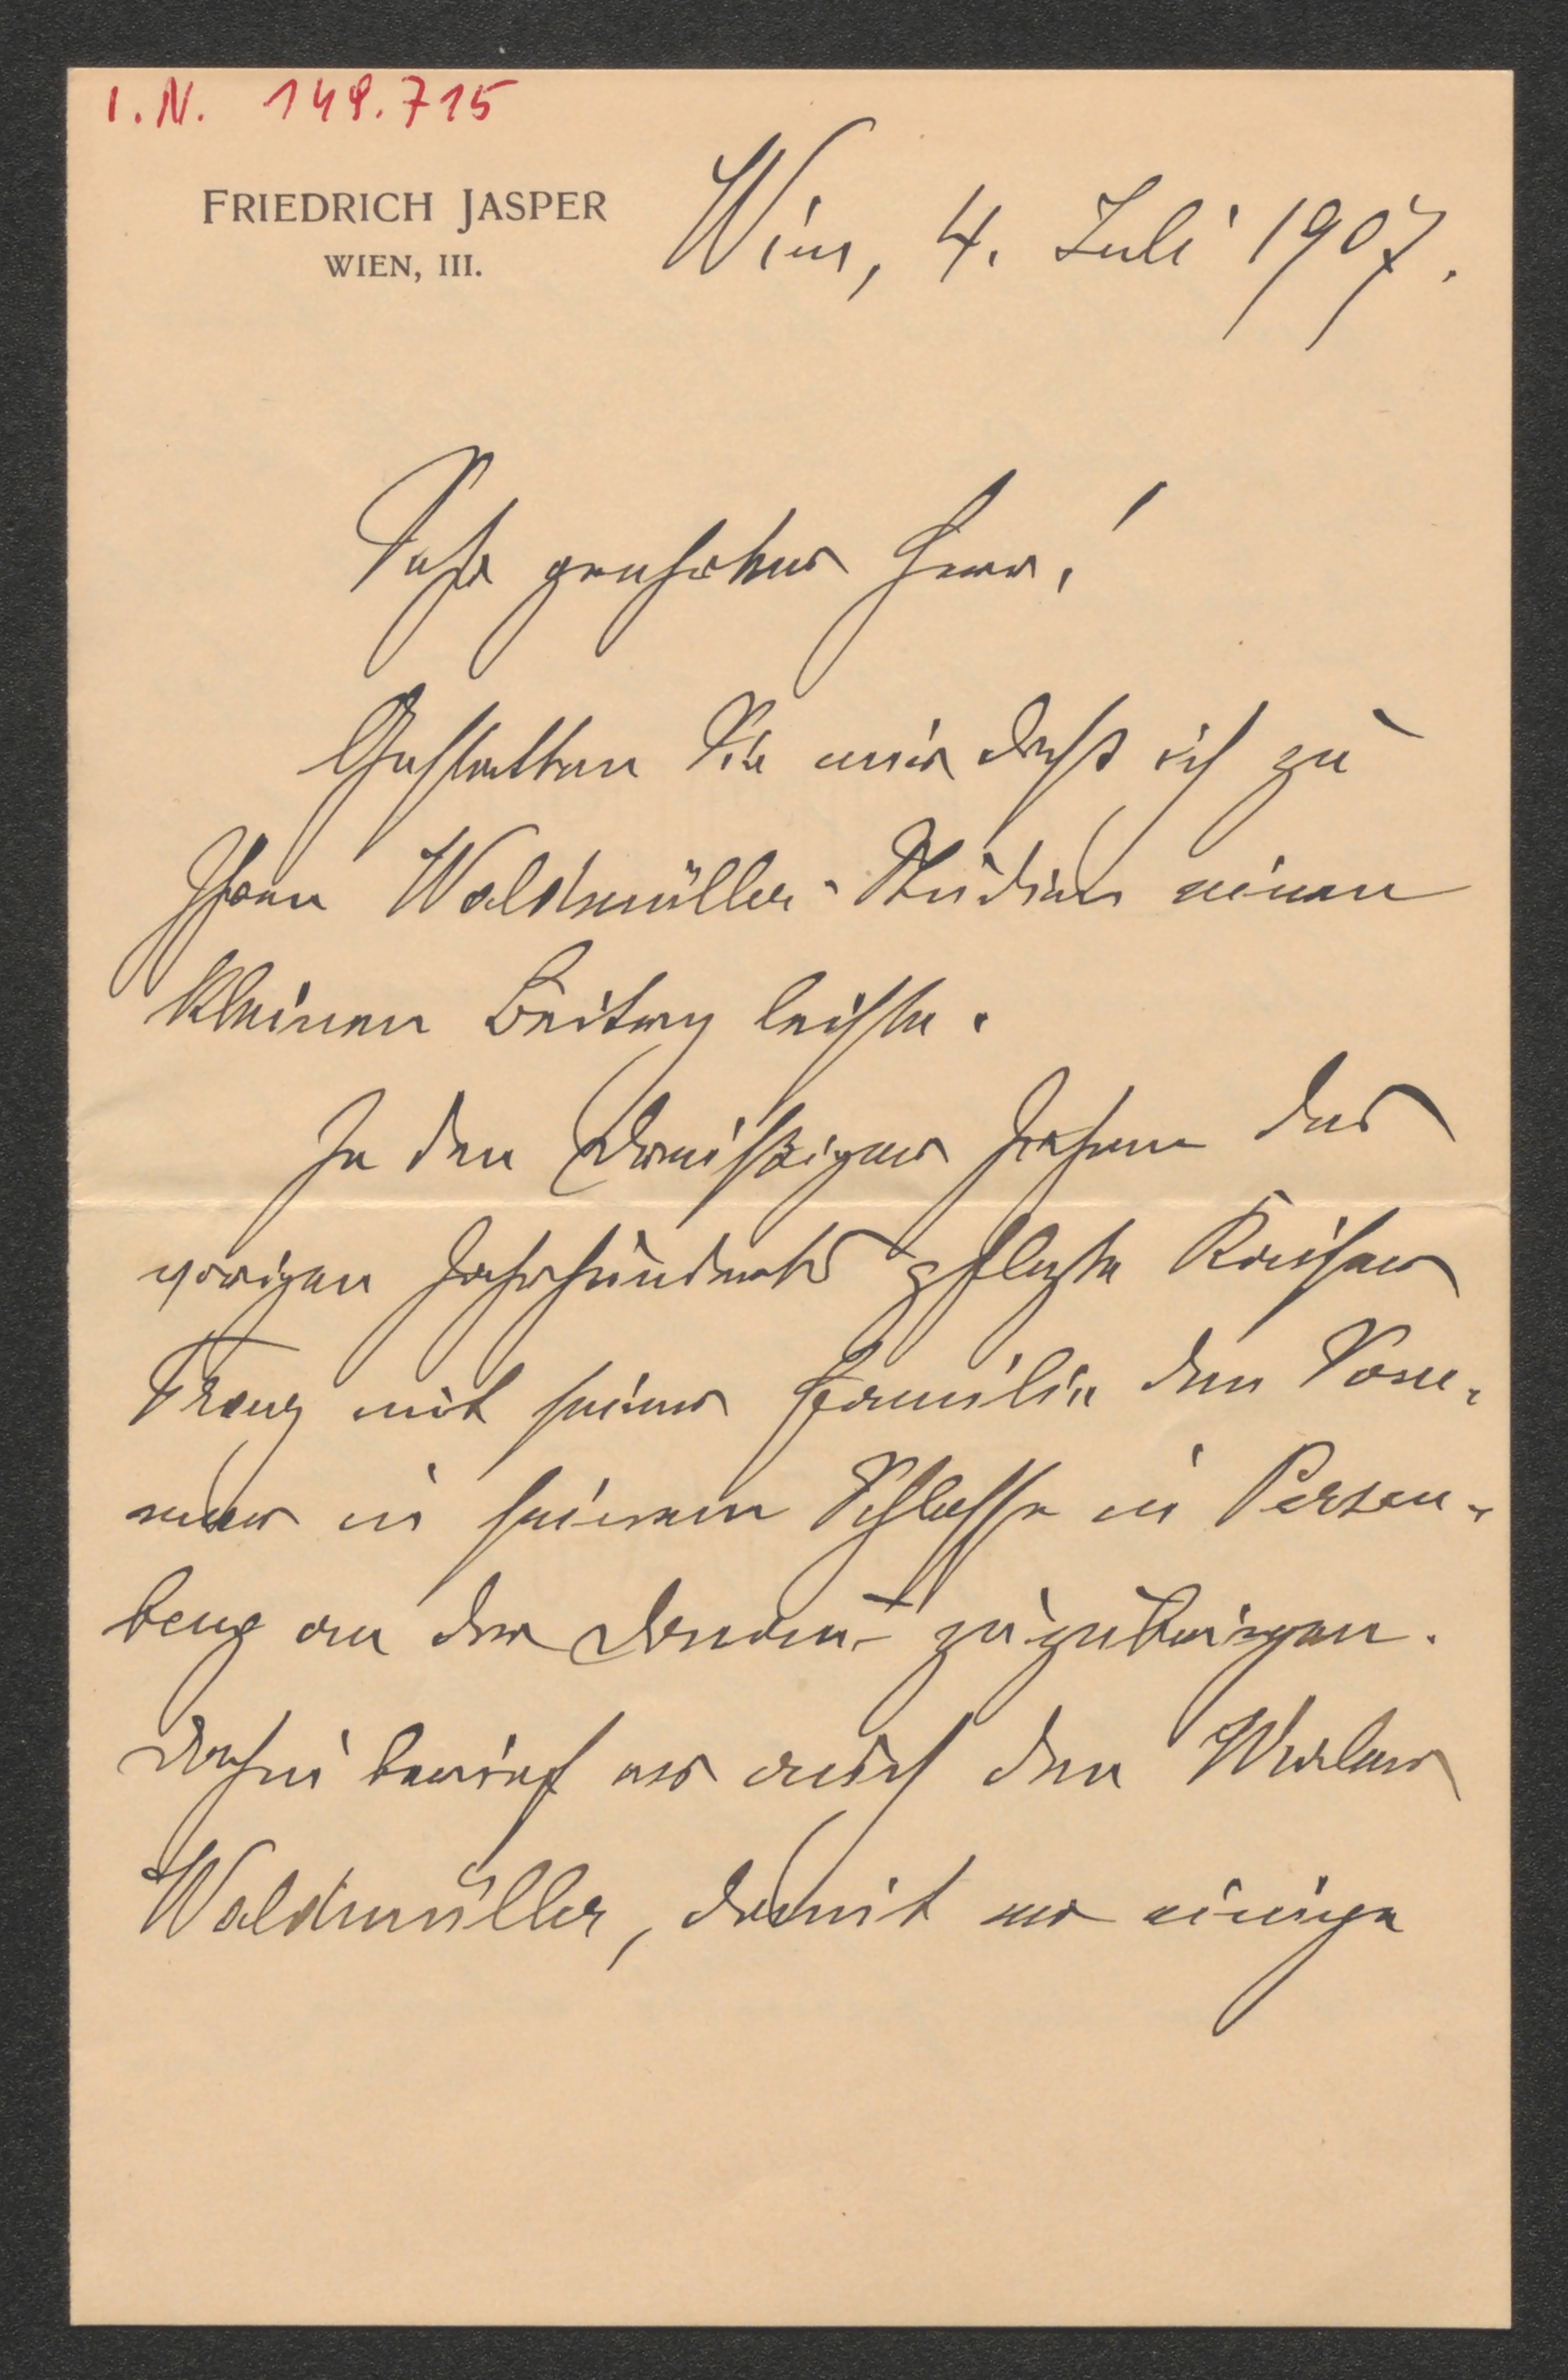 I. N. 149.715
FRIEDRICH JASPER
WIEN, III.
Wien, 4. Juli 1907.
Sehr geehrter Herr!
Gestatten Sie mir daß ich zu
Ihren Waldmüller-Studien einen
kleinen Beitrag leiste.
In den Dreißiger Jahren des
vorigen Jahrhunderts pflegte Kaiser
Franz mit seiner Familie den Som-
mer in seinem Schlosse in Persen-
beug an der Donau zuzubringen.
Dahin berief er auch den Maler
Waldmüller, damit er einige